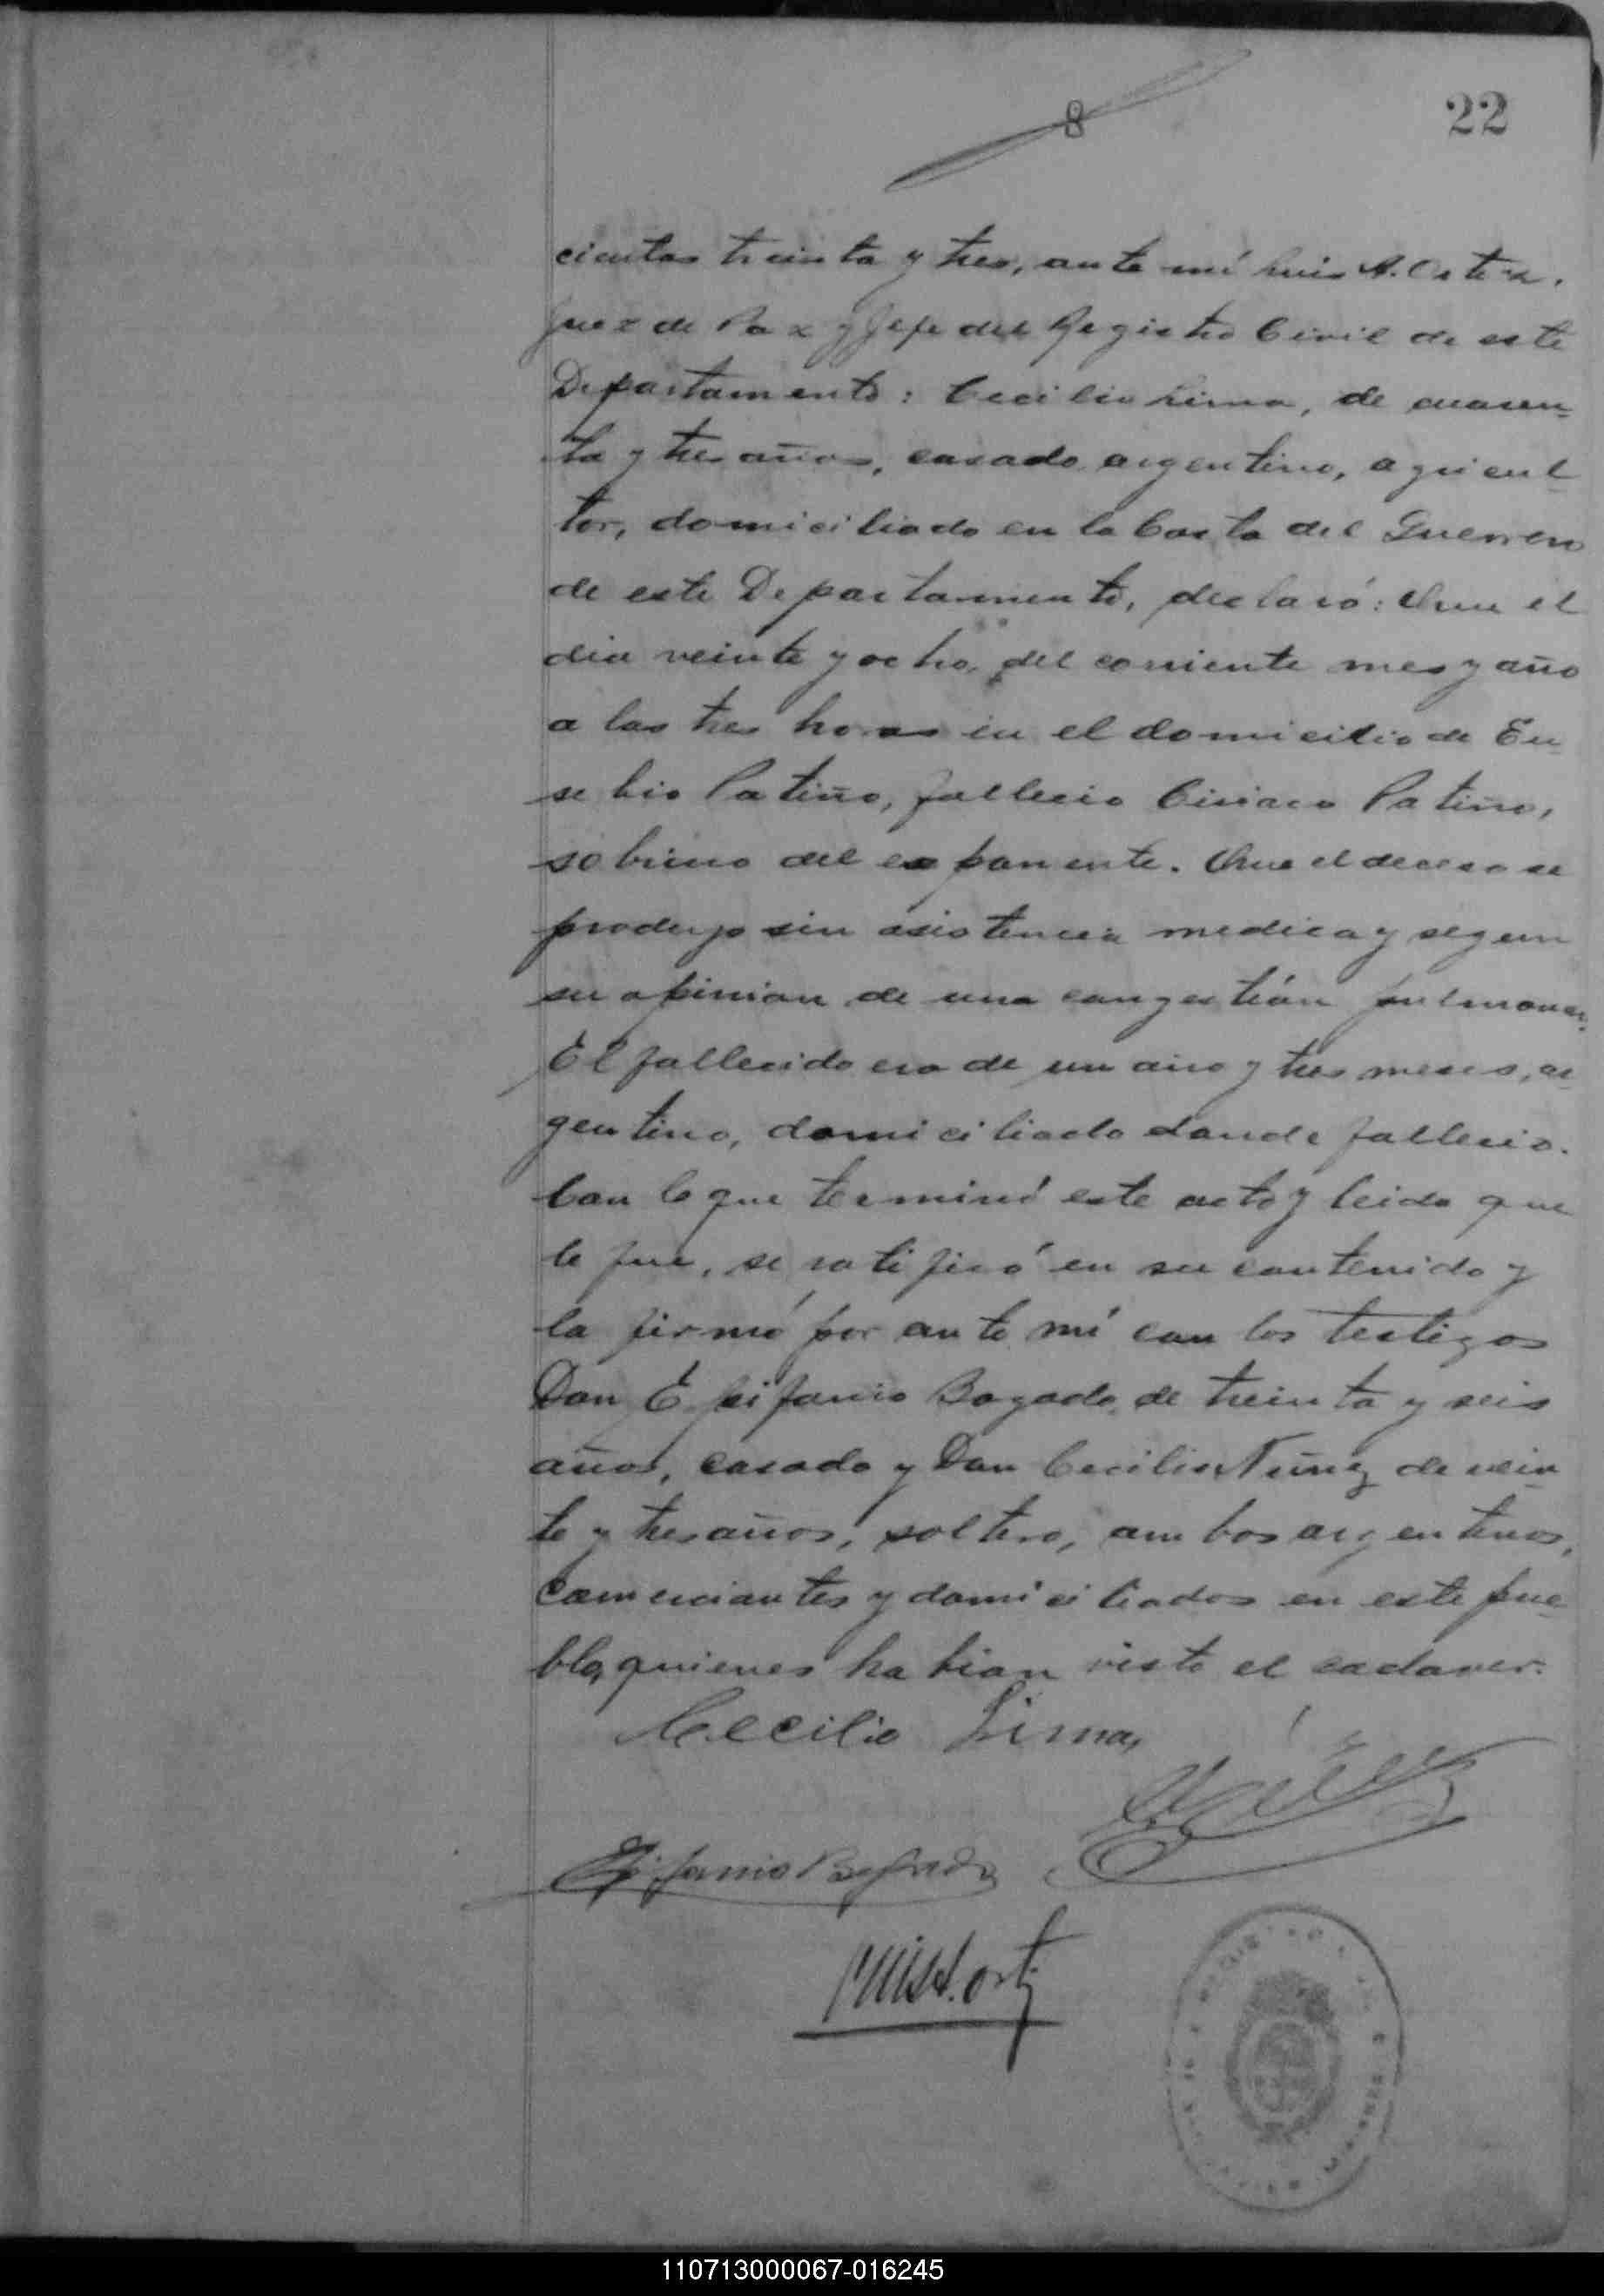 8
22
cientos treinta y tres, ante mí Luis A. Ortiz,
Juez de Paz y Jefe del Registro Civil de este
Departamento: Cecilio Lima, de cuaren-
ta y tres años, casado, argentino, agricul-
tor, domiciliado en la Costa del Guerrero
de este Departamento, declaró: Que el
dia veinte y ocho del corriente mes y año
a las tres horas en el domicilio de Eu-
sebio Patiño, fallecio Ciriaco Patiño,
sobrino del exponente. Que el deceso se
produjo sin asistencia medica y segun
su opinion de una congestión pulmonar.
El fallecido era de un año y tres meses, ar-
gentino, domiciliado donde fallecio.
Con lo que terminó este acto y leida que
le fue, se ratificó en su contenido y
la firmó por ante mí con los testigos
Don Epifanio Bogado, de treinta y seis
años, casado y Don Cecilio Nuñez de vein-
te y tres años, soltero, ambos argentinos,
comerciantes y domiciliados en este pue-
blo, quienes habian visto el cadaver.
Cecilio Lima
Epifanio Bogado
Luis A. Ortiz
110713000067-016245